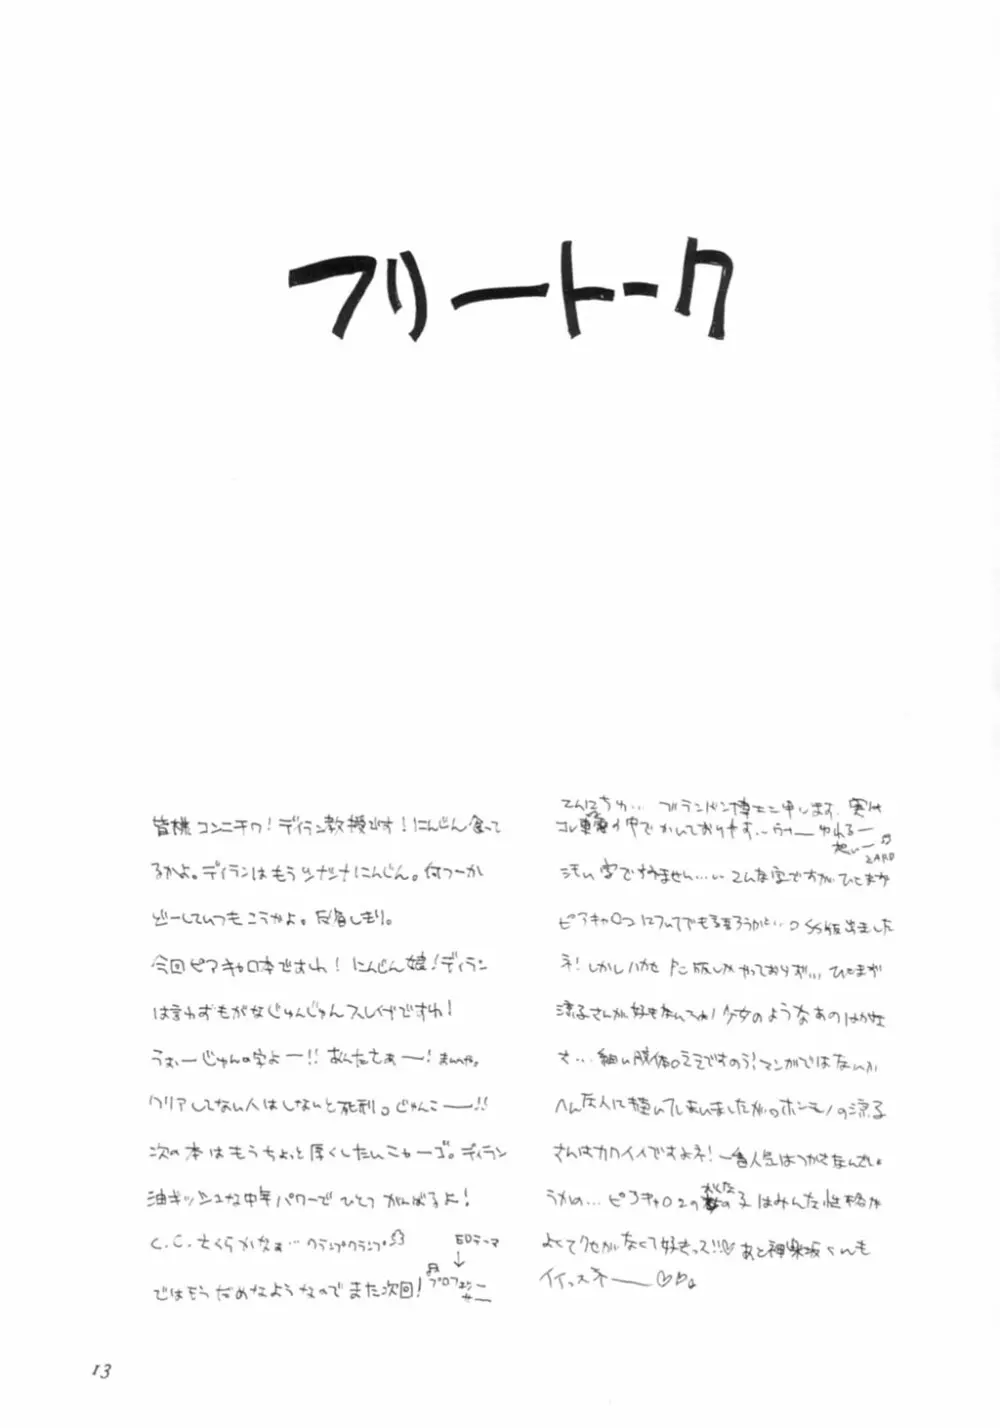 フリートーク
皆様コンニチワ!ディラン教授です!にんじん食って
るかよ。ディランはもうツナツナにんじん。何つーか
どーしていつもこうかよ。反省しきり。
今回ピアキャロ本ですわ!にんじん娘!ディラン
は言わずもがなじゅんじゅんスレイブですわ!
うぉぃーじゅんの字よー!!おんたさぁー!まんいや。
クリアしてない人はしないと死刑。じゅんこー!!
次の本はもうちょっと厚くしたいニャーゴ。ディラン
油ギッシュな中年パワーでひとつがんばるよ!
C.C.さくらかなぁ…クランプクランプ
EDテーマ
↓
ではもうだめなようなのでまた次回!
♫プロフェッサー
こんにちわ… ブランドン博士と申します。実は
コレ車の中でかいております…うわーゆれるー
想いー♫
ZARD
汚い字ですみません…こんな字ですがひとまず
ピアキャロ2についてでも語ろうかと…SS版出ました
ネ!しかしハカセドコ版しかやっておりず…ひとまず
涼子さんが好きなんですわ!少女のようなあのはかな
さ…細い肢体。ええですのう!マンガではないか
へんな人に描いてしまいましたが。ホンモノの涼子
さんはカワイイですよネ!一番人気はつかさなんでしょ
うかの…ピアキャロ2の女の子はみんな性格が
よくてクセがなくて好きッス!!♡あと神楽坂くんも
イイッスネー♡
13